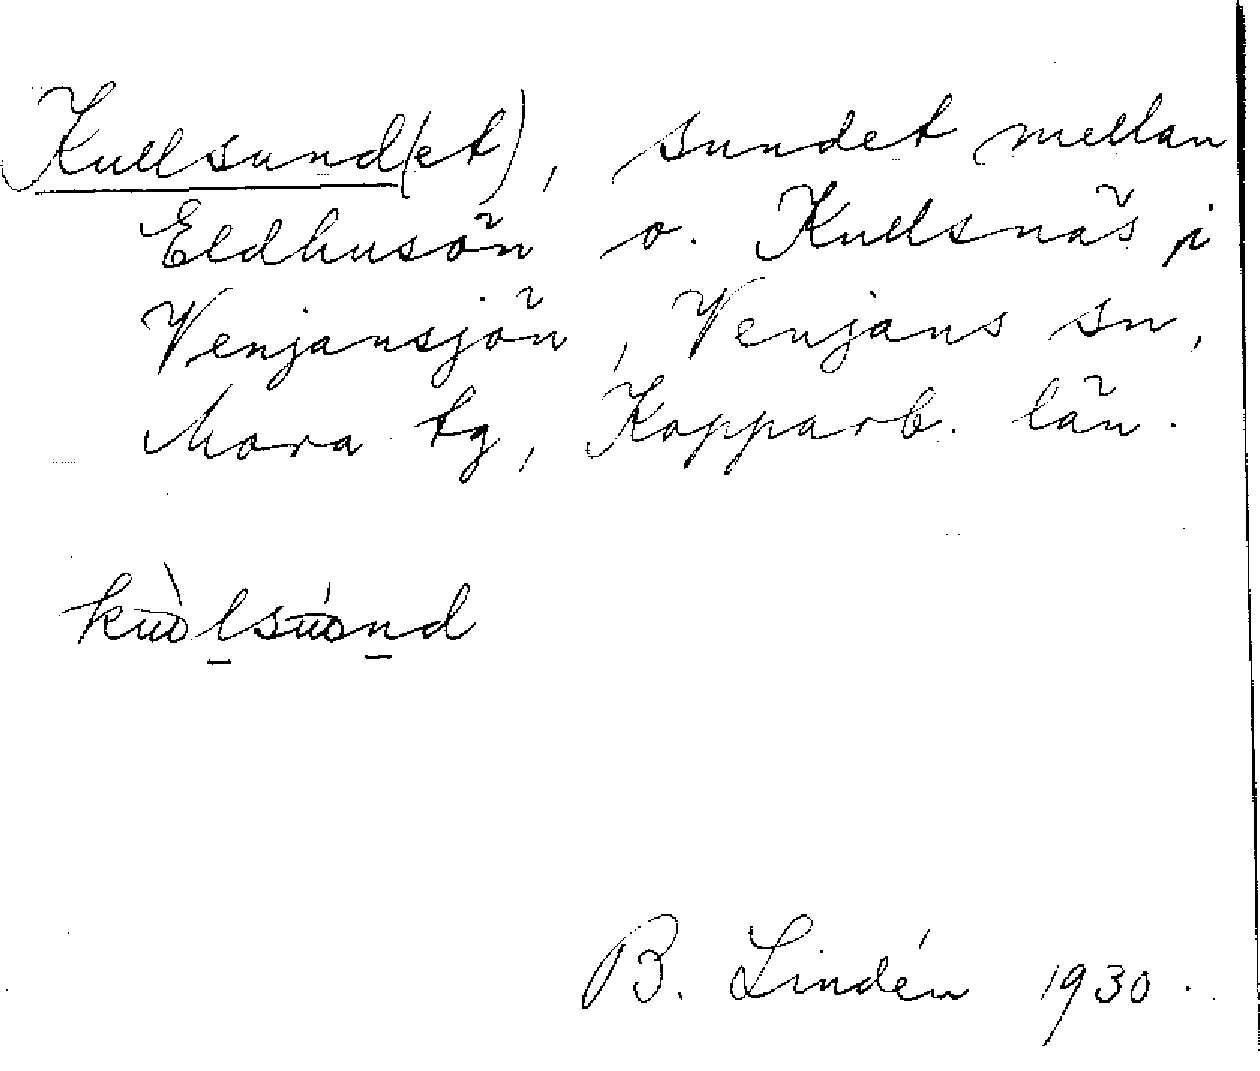 Kullsund(et), sundet mellan
Eldhusön o. Kullsnäs i
Venjansjön, Venjans sn,
Mora tg, Kopparb. län.
B. Lindén 1930.